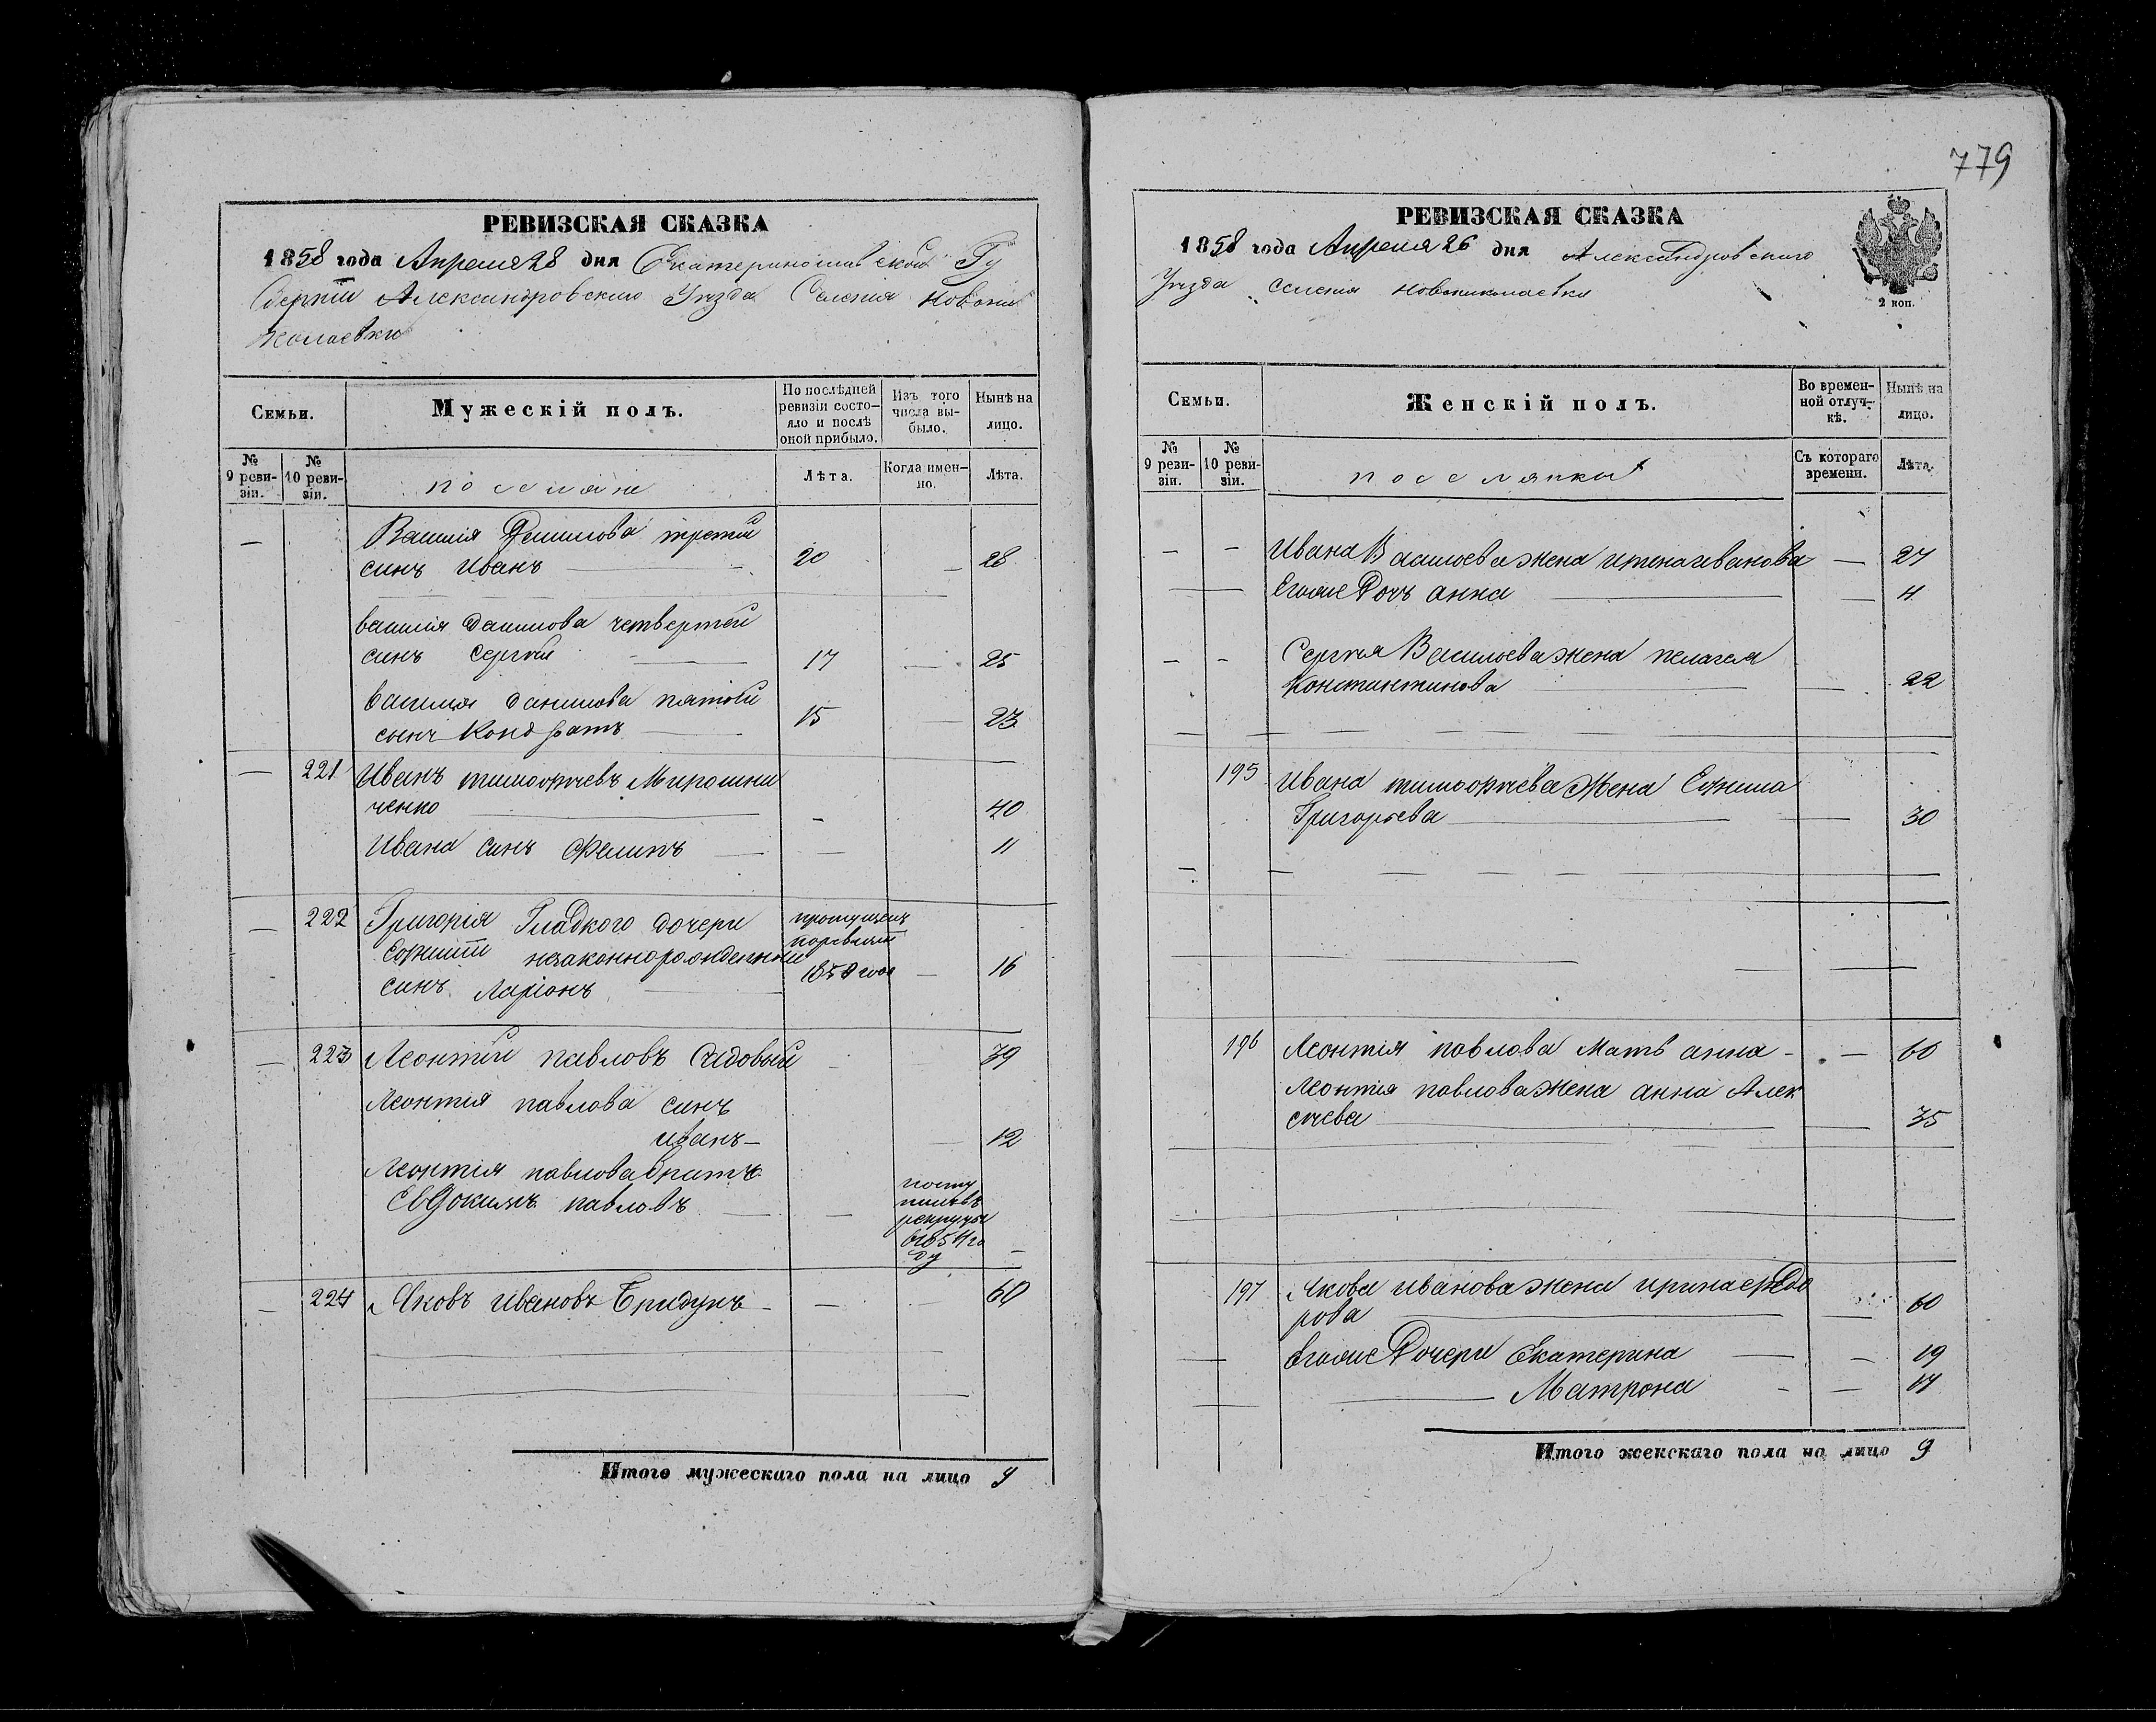 779
РЕВИЗСКАЯ СКАЗКА
1858 года Апреля 28 дня Екатеринославской Гу
берніи Александровского Уезда Селения Новони
колаевки
Семьи.
Мужескій полъ.
По послѣдней
ревизіи состо-
яло и послѣ
оной прибыло.
Изъ того
числа вы-
было.
Нынѣ на
лицо.
№
9 реви-
зіи.
№
10 реви-
зіи.
поселяне
Лѣта.
Когда имен-
но.
Лѣта.
— Василія Данилова третій
синъ Иванъ — 20 — 28
василія Данилова четвертой
синъ Сергѣй — 17 — 25
василія Данилова пятой
сынъ Кондратъ — 15 — 23
— 221 Иванъ тимофѣевъ Мирошни
ченко — - 40
Ивана синъ Филипъ — — 11
— 222 Григорія Гладкого дочери
Ефиміи незаконнорожденный
синъ Ларіонъ — пропущенъ
поревизіи
1850 года — 16
— 223 Леонтій павловъ Садовый 39
Леонтія павлова синъ
иванъ — — 12
Леонтія павлова братъ
Евдокимъ павловъ — — посту
пилъ въ
рекруты
в 1854 го
ду —
— 224 Яковъ ивановъ Бридунъ — — — 60
Итого мужескаго пола на лицо 9
РЕВИЗСКАЯ СКАЗКА
1858 года Апреля 26 дня Александровского
Уезда Селенія Новониколаевки
2 коп.
Семьи.
Женскій полъ.
Во времен-
ной отлуч-
кѣ.
Нынѣ на
лицо.
№
9 реви-
зіи.
№
10 реви-
зіи.
поселянки
Съ котораго
времени.
Лѣта.
— — Ивана Василоева жена иванова — 27
Егоже Дочъ анна — — 4
— — Сергея Василоева жена пелагея
Константинова — — 22
195 Ивана тимофѣева Жена Ефима
Григорьева — — 30
196 Леонтія повлова Мать анна - — 60
Леонтія повлова жена анна Алек
сѣева — — 35
197 Якова иванова жена ирина Федо
рова — — 60
Егоже Дочери Екатерина — — 19
— Матрона - — 17
Итого женскаго пола на лицо 9